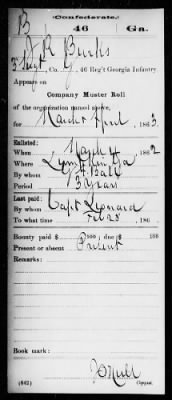 Confederate.
B 46 Ga.
J. R. Burks
3 Sergt, Co. , 46 Reg't Georgia Infantry.
Appears on
Company Muster Roll
of the organization named above,
for March & April, 1863
Enlisted:
When March 4, 1862
Where Ga
By whom
Period 3 years
Last paid:
By whom Capt Leonard
To what time Feb 28, 186
Bounty paid $ 100; due $ 100
Present or absent Present
Remarks:
Book mark:
(642) Copyist.